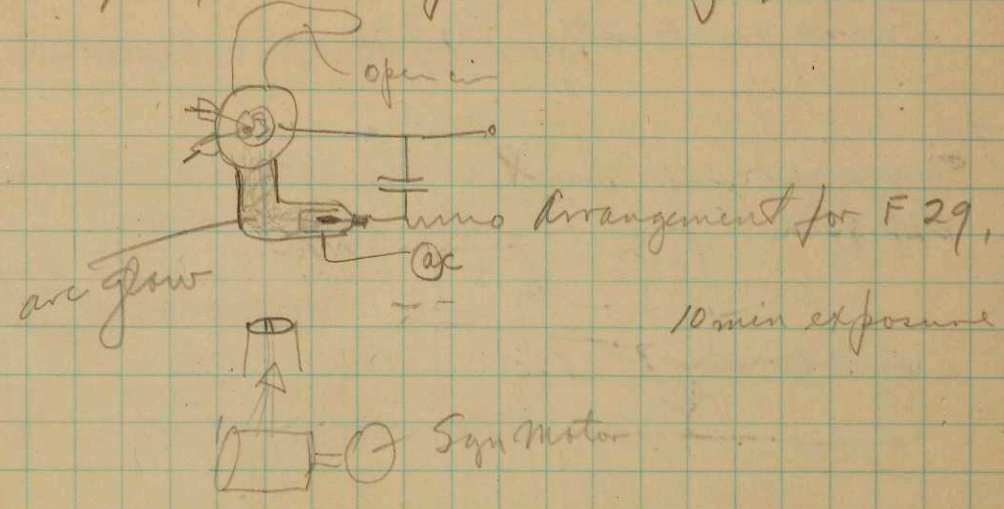 open
Arrangement for F 29,
ac
arc glow
10 min exposure
Syn motor